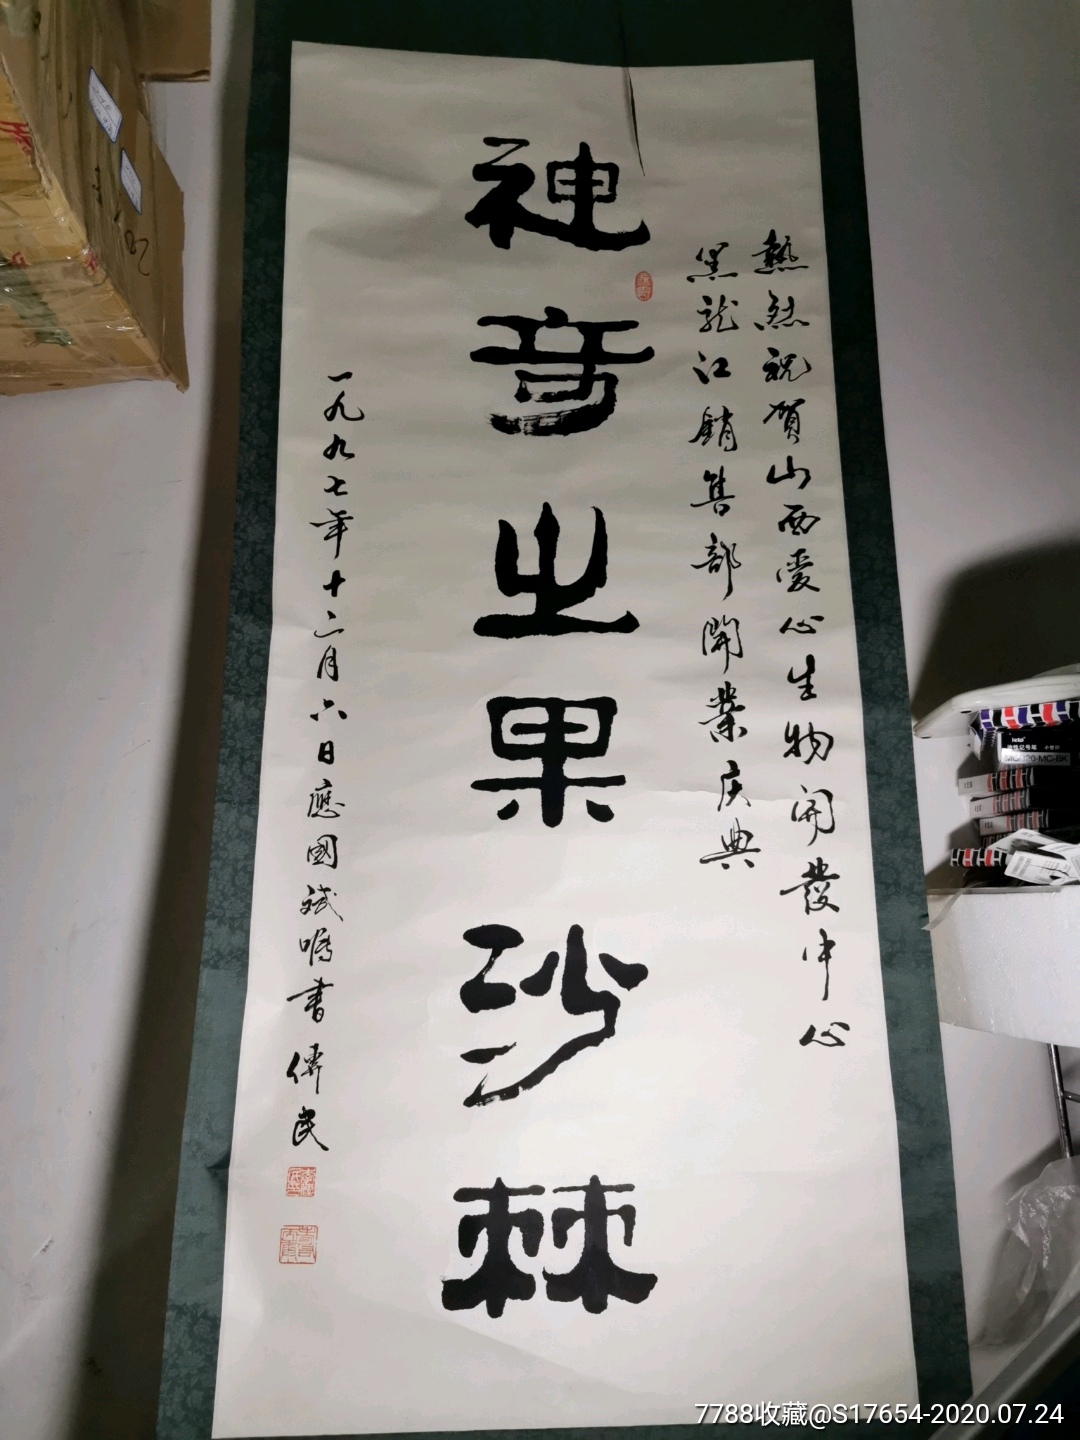 熱烈祝贺山西爱心生物开發中心
黑龙江銷售部開業庆典
神奇之果沙棘
一九九七年十二月六日應國斌嘱書
民
7788收藏@S17654-2020.07.24